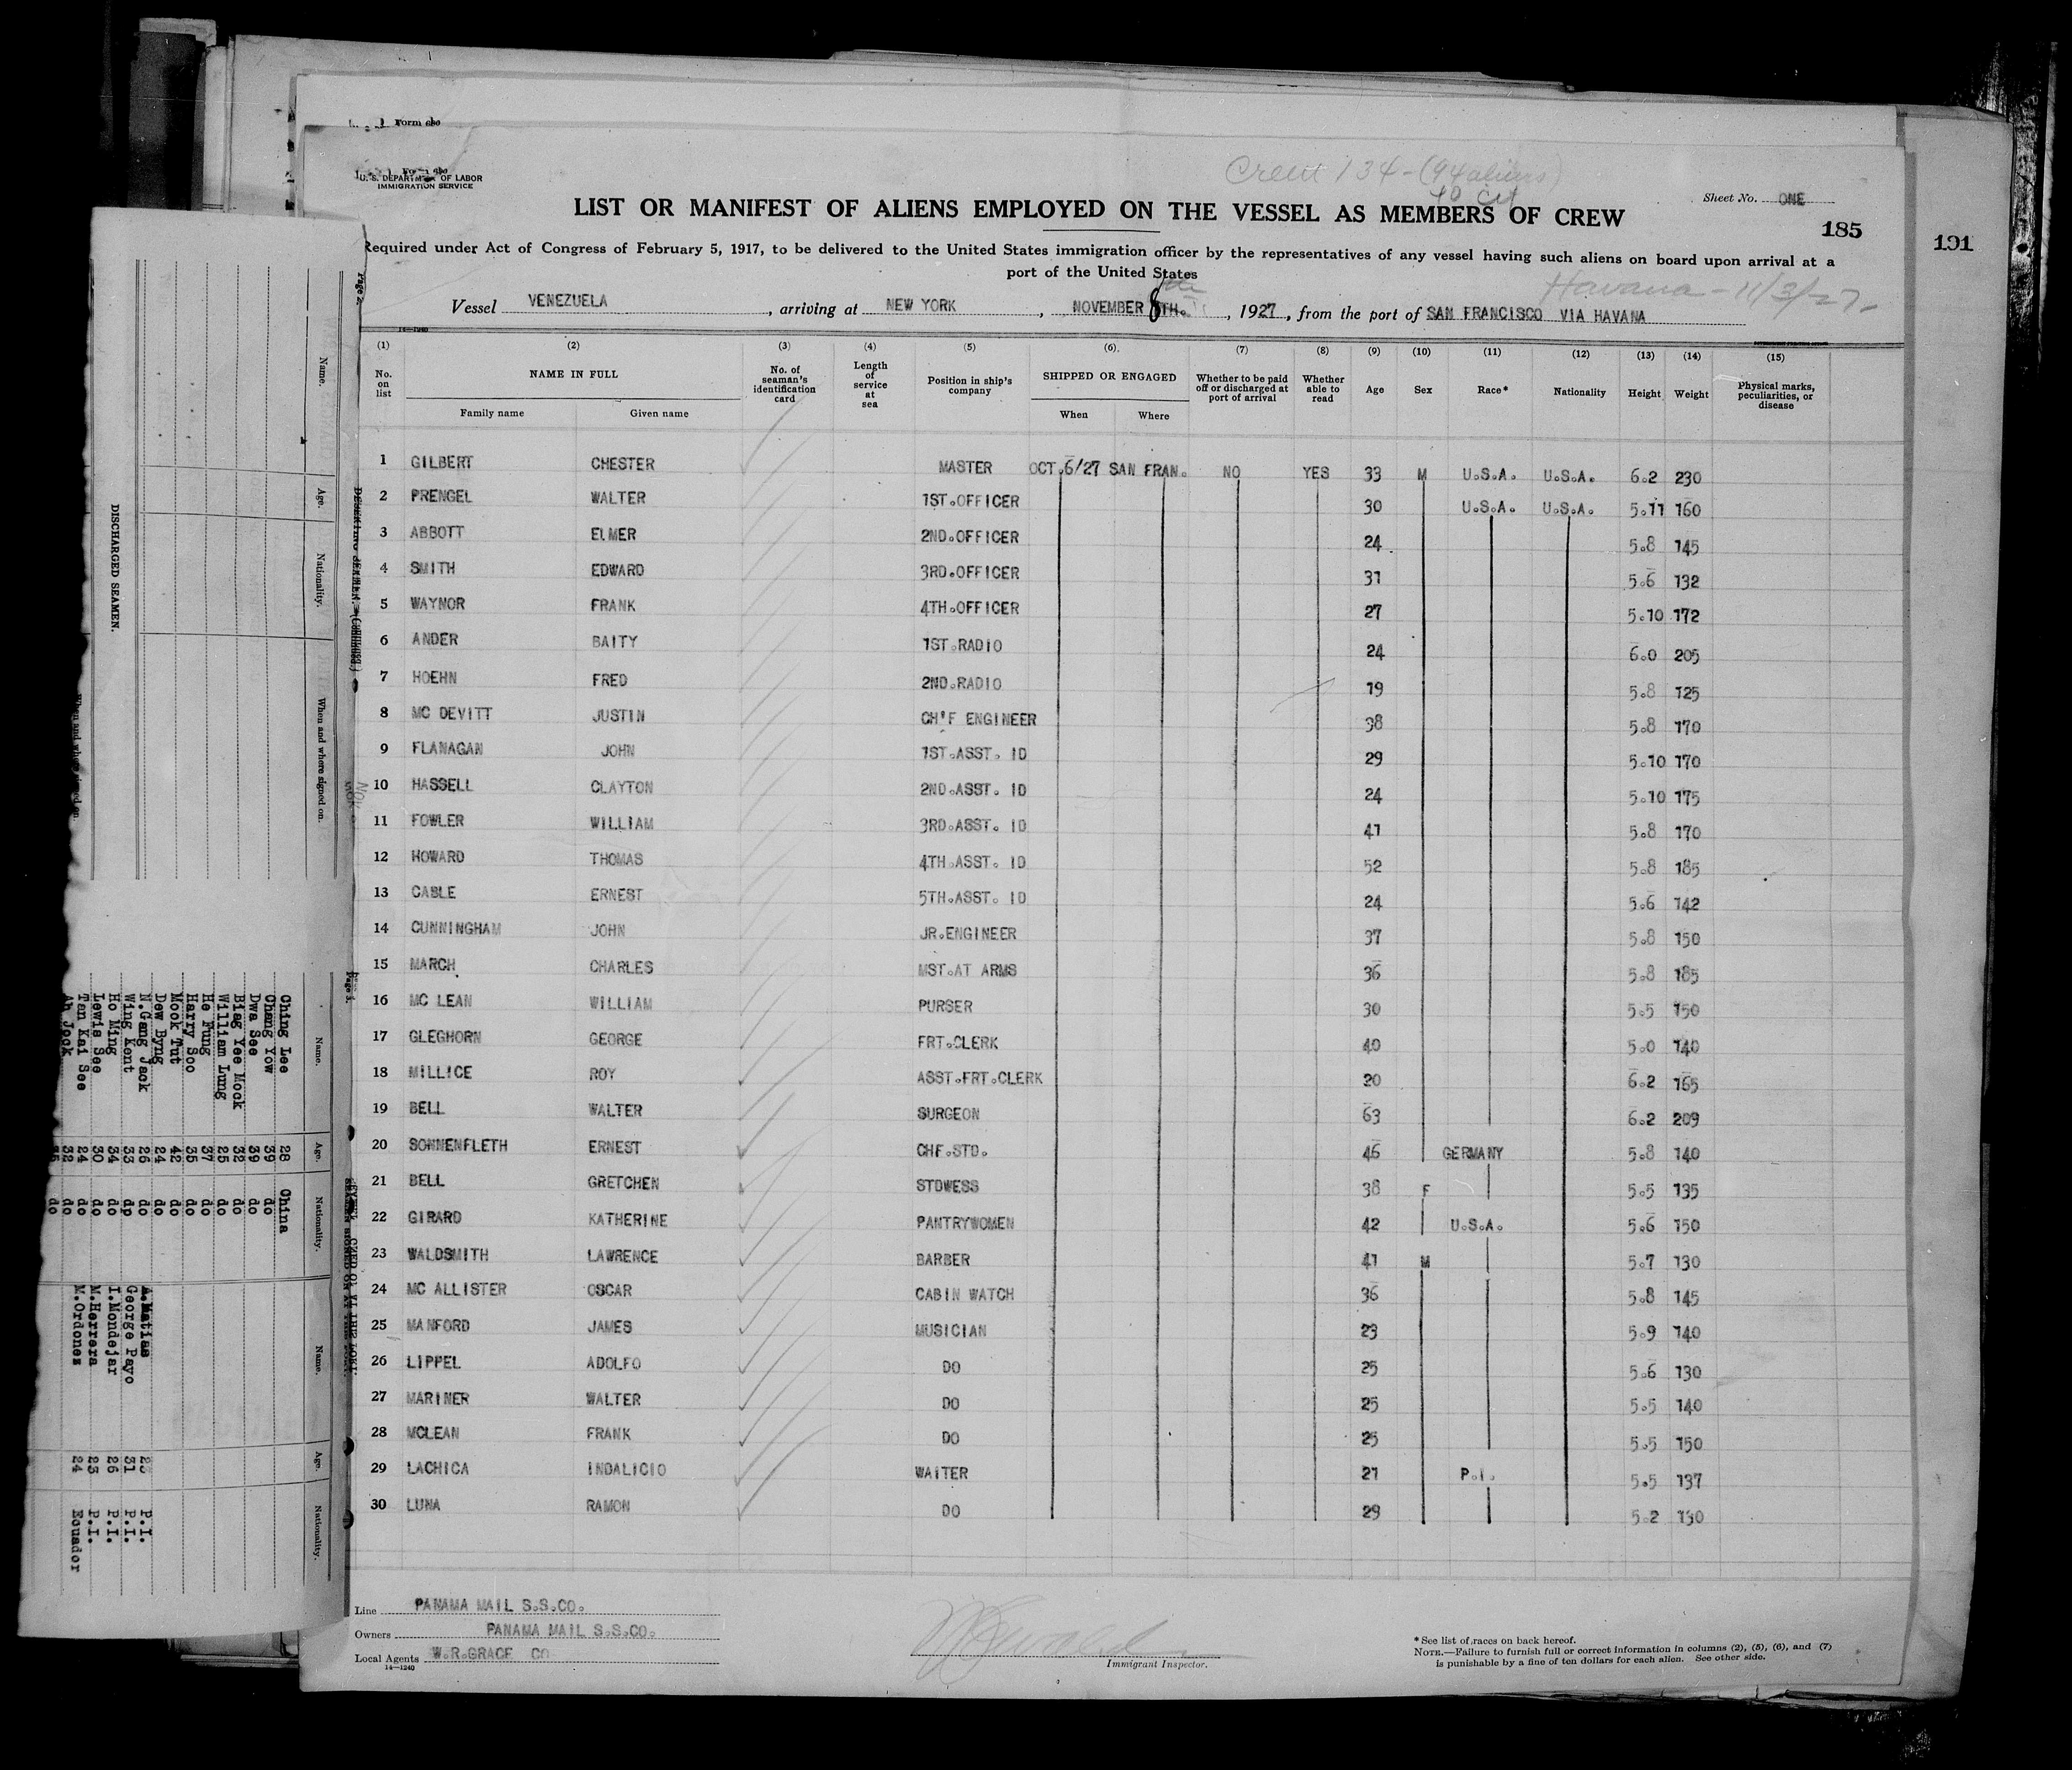 Form 680
U. S. DEPARTMENT OF LABOR
IMMIGRATION SERVICE
Crew 134 - (94 aliens)
40 Cit
Sheet No. ONE
LIST OR MANIFEST OF ALIENS EMPLOYED ON THE VESSEL AS MEMBERS OF CREW
185
191
Required under Act of Congress of February 5, 1917, to be delivered to the United States immigration officer by the representatives of any vessel having such aliens on board upon arrival at a
port of the United States
Havana - 11/3/27 -
Vessel VENEZUELA, arriving at NEW YORK, NOVEMBER 8TH., 1927, from the port of SAN FRANCISCO VIA HAVANA
14-1240
(1) (2) (3) (4) (5) (6) (7) (8) (9) (10) (11) (12) (13) (14) (15)
No. on list NAME IN FULL Family name Given name No. of seaman's identification card Length of service at sea Position in ship's company SHIPPED OR ENGAGED When Where Whether to be paid off or discharged at port of arrival Whether able to read Age Sex Race* Nationality Height Weight Physical marks, peculiarities, or disease
1 GILBERT CHESTER MASTER OCT.6/27 SAN FRAN. NO YES 33 M U.S.A. U.S.A. 6.2 230
2 PRENGEL WALTER 1ST.OFFICER 30 U.S.A. U.S.A. 5.11 160
3 ABBOTT ELMER 2ND.OFFICER 24 5.8 145
4 SMITH EDWARD 3RD.OFFICER 31 5.6 132
5 WAYNOR FRANK 4TH.OFFICER 27 5.10 172
6 ANDER BAITY 1ST.RADIO 24 6.0 205
7 HOEHN FRED 2ND.RADIO 19 5.8 125
8 MC DEVITT JUSTIN CH'F ENGINEER 38 5.8 170
9 FLANAGAN JOHN 1ST.ASST. ID 29 5.10 170
10 HASSELL CLAYTON 2ND.ASST. ID 24 5.10 175
11 FOWLER WILLIAM 3RD.ASST. ID 41 5.8 170
12 HOWARD THOMAS 4TH.ASST. ID 52 5.8 185
13 CABLE ERNEST 5TH.ASST. ID 24 5.6 142
14 CUNNINGHAM JOHN JR.ENGINEER 37 5.8 150
15 MARCH CHARLES MST.AT ARMS 36 5.8 185
16 MC LEAN WILLIAM PURSER 30 5.5 150
17 GLEGHORN GEORGE FRT.CLERK 40 5.0 140
18 MILLICE ROY ASST.FRT.CLERK 20 6.2 165
19 BELL WALTER SURGEON 63 6.2 209
20 SONNENFLETH ERNEST CHF.STD. 46 GERMANY 5.8 140
21 BELL GRETCHEN STDWESS 38 F 5.5 135
22 GIRARD KATHERINE PANTRYWOMEN 42 U.S.A. 5.6 150
23 WALDSMITH LAWRENCE BARBER 41 M 5.7 130
24 MC ALLISTER OSCAR CABIN WATCH 36 5.8 145
25 MANFORD JAMES MUSICIAN 23 5.9 140
26 LIPPEL ADOLFO DO 25 5.6 130
27 MARINER WALTER DO 25 5.5 140
28 MCLEAN FRANK DO 25 5.5 150
29 LACHICA INDALICIO WAITER 21 P.I. 5.5 137
30 LUNA RAMON DO 29 5.2 130
Line PANAMA MAIL S.S.CO.
Owners PANAMA MAIL S.S.CO.
Local Agents W.R.GRACE CO
14-1240
Immigrant Inspector.
* See list of races on back hereof.
NOTE.—Failure to furnish full or correct information in columns (2), (5), (6), and (7)
is punishable by a fine of ten dollars for each alien. See other side.
Page 2.
DISCHARGED SEAMEN.
Name. Age. Nationality. When and where signed on.
Page 3.
Name. Age. Nationality.
Ching Lee 28 China
Chang Yow 39 do
Dwa See 39 do
Biag Yee Mook 32 do
William Lung 25 do
He Fung 37 do
Harry Soo 35 do
Mook Tut 42 do
Dew Byng 24 do
N.Gang Jack 26 do
Wing Kent 33 do
Ho Ming 34 do
Lewis See 30 do
Tan Kai See 24 do
Ah Jock 32 do
do
Name. Age. Nationality.
A.Matias 23 P.I.
George Payo 31 P.I.
I.Mondejar 26 P.I.
M.Herrera 23 P.I.
M.Ordonez 24 Ecuador